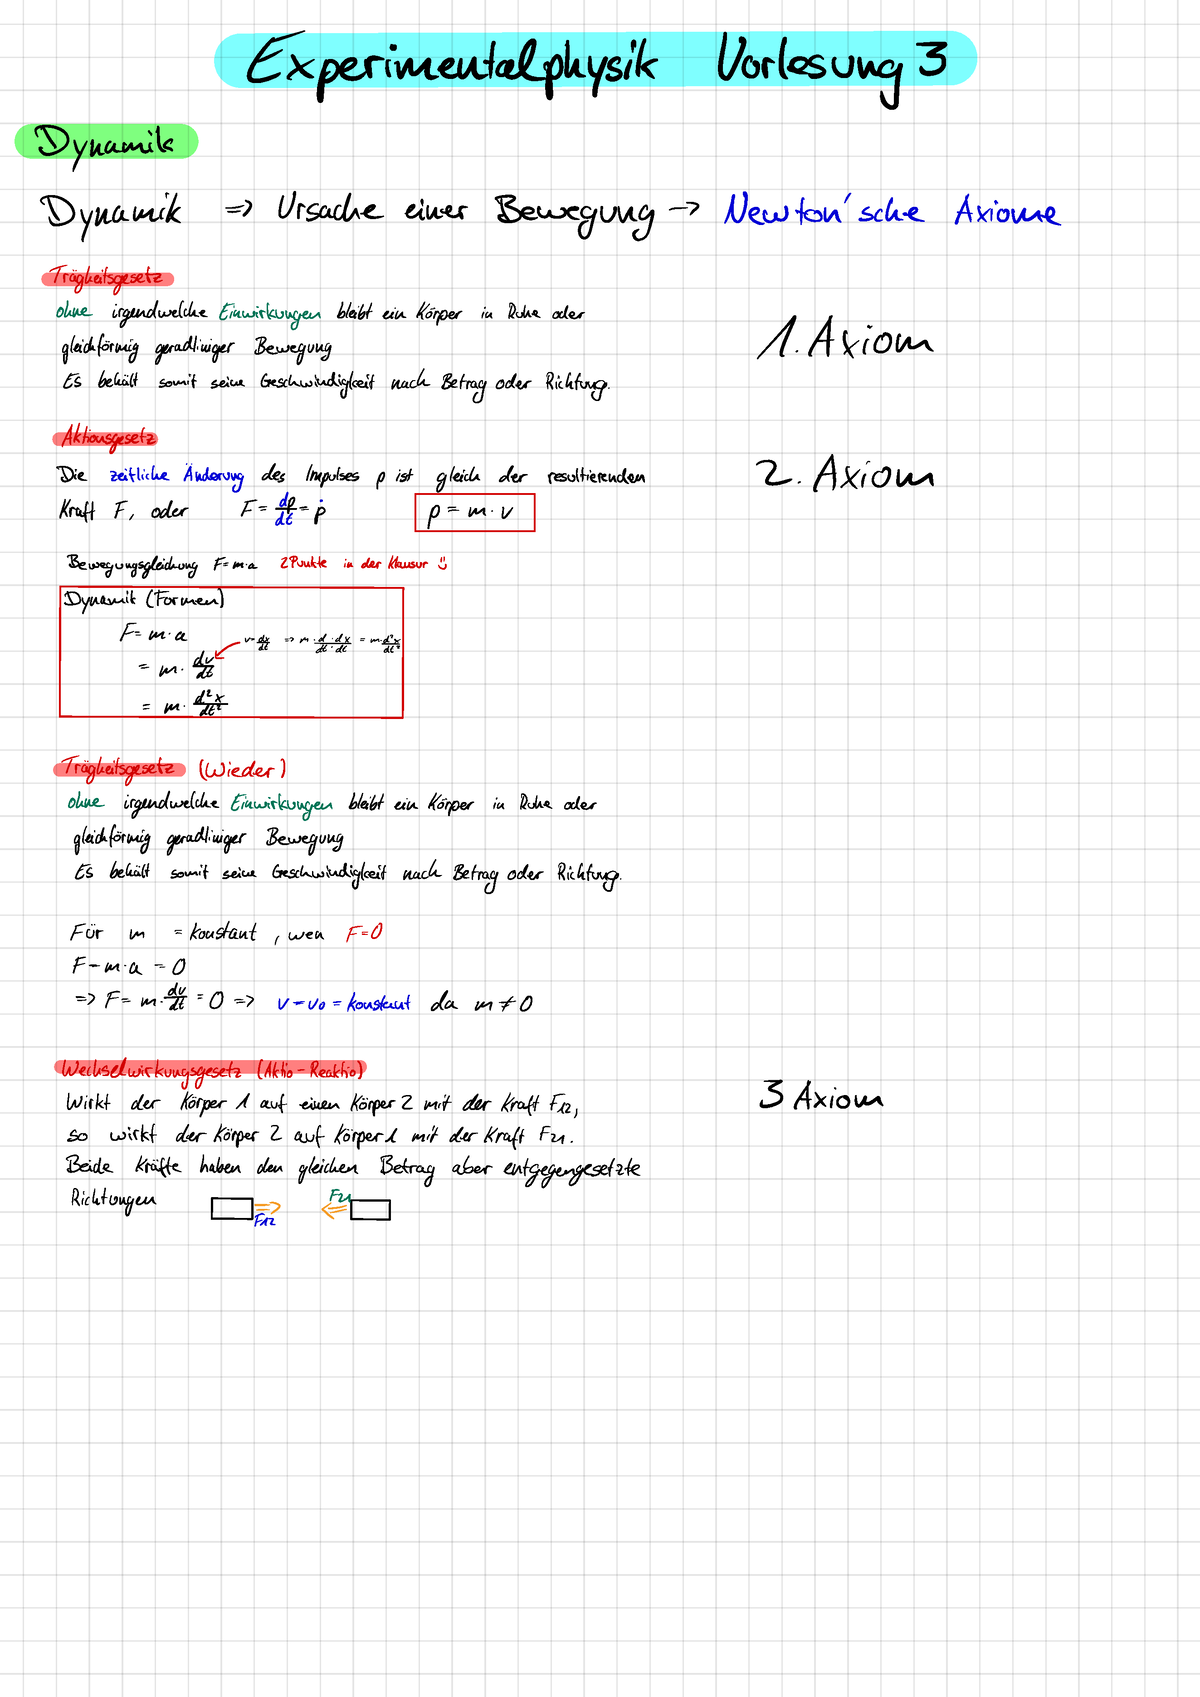 Experimentalphysik Vorlesung 3
Dynamik
Dynamik => Ursache einer Bewegung -> Newton'sche Axiome
Trägheitsgesetz
ohne irgendwelche Einwirkungen bleibt ein Körper in Ruhe oder
gleichförmig geradliniger Bewegung
1. Axiom
Es behält somit seine Geschwindigkeit nach Betrag oder Richtung.
Aktionsgesetz
Die zeitliche Änderung des Impulses p ist gleich der resultierenden
2. Axiom
Kraft F, oder F = dp/dt = ṗ p = m · v
Bewegungsgleichung F = m·a 2 Punkte in der Klausur ü
Dynamik (Formen)
F = m · a
v = dx/dt => m · d/dt · dx/dt = m · d²x/dt²
= m · dv/dt
= m · d²x/dt²
Trägheitsgesetz (Wieder)
ohne irgendwelche Einwirkungen bleibt ein Körper in Ruhe oder
gleichförmig geradliniger Bewegung
Es behält somit seine Geschwindigkeit nach Betrag oder Richtung.
Für m = konstant, wen F=0
F = m·a = 0
=> F = m · dv/dt = 0 => v = v0 = konstant da m ≠ 0
Wechselwirkungsgesetz (Aktio - Reaktio)
Wirkt der Körper 1 auf einen Körper 2 mit der Kraft F12,
3 Axiom
so wirkt der Körper 2 auf Körper 1 mit der Kraft F21.
Beide Kräfte haben den gleichen Betrag aber entgegengesetzte
Richtungen
F21
F12